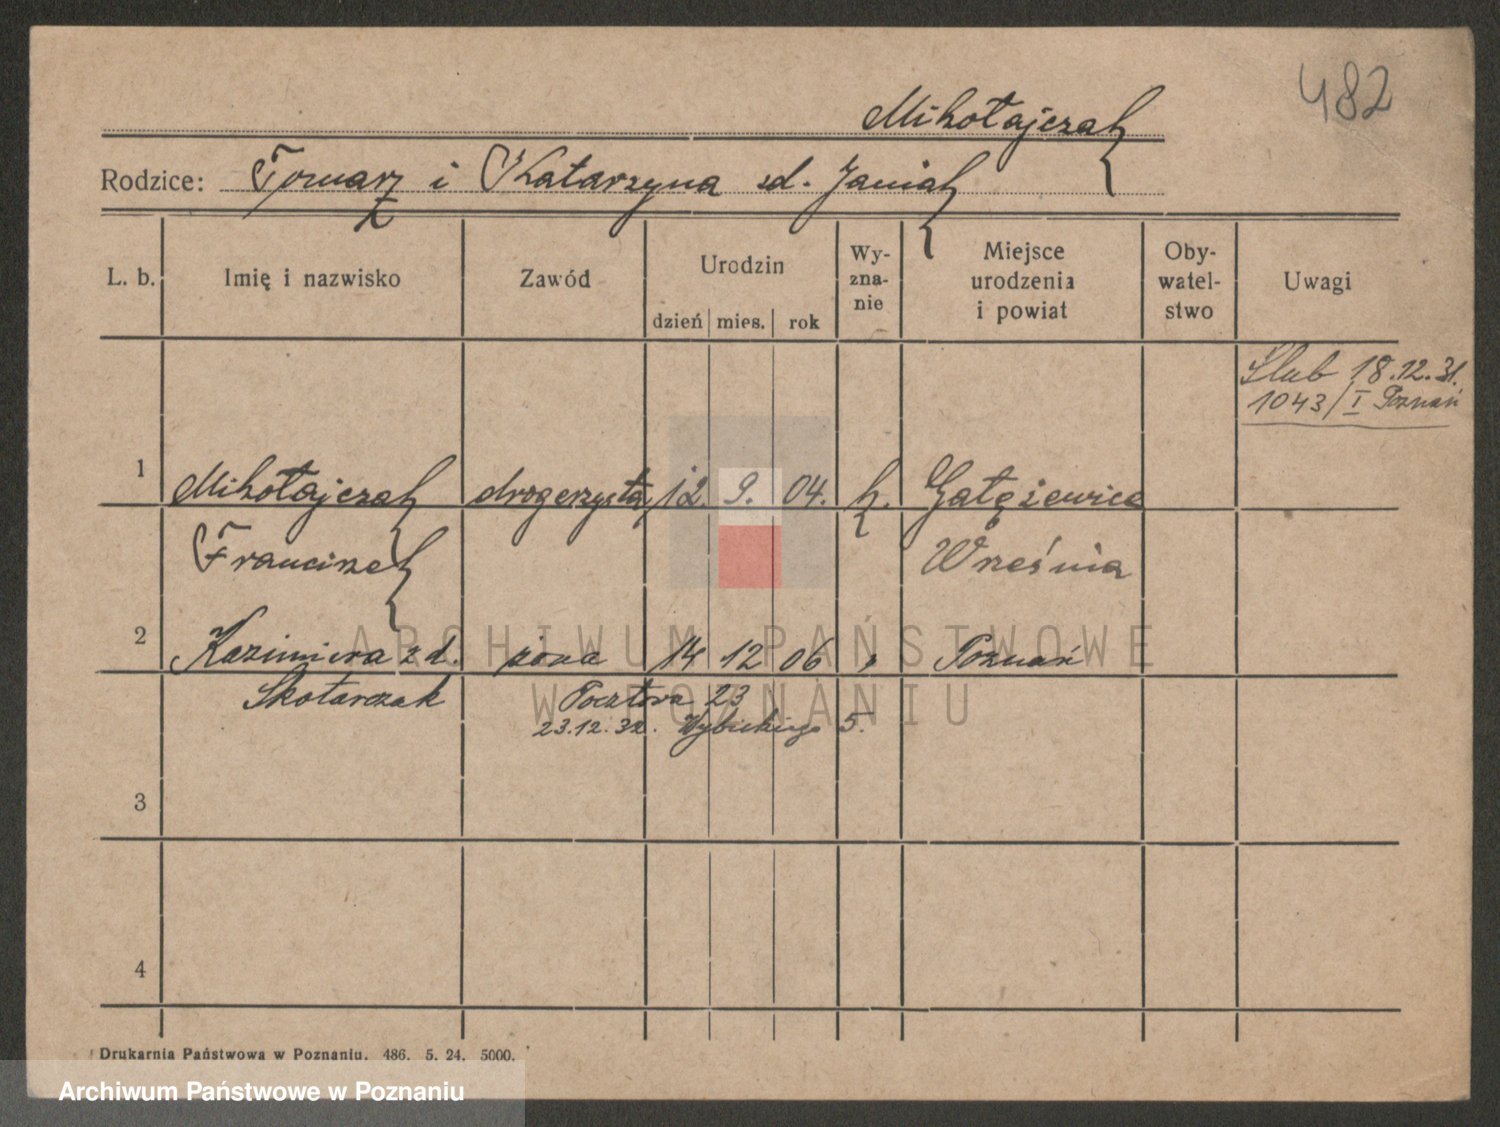 482
Mikołajczak
Rodzice: Tomasz i Katarzyna zd. Janiak
L. b. Imię i nazwisko Zawód Urodzin dzień mies. rok Wy-zna-nie Miejsce urodzenia i powiat Oby-watel-stwo Uwagi
Ślub 18.12.31.
1043/I Poznań
1 Mikołajczak drogerzysta 12. 9. 04. k. Gałęzewice
Franciszek Września
2 Kazimiera z d. żona 14 12 06 " Poznań
Skotarczak Pocztowa 23
23.12.32. Wybickiego 5.
3
4
Drukarnia Państwowa w Poznaniu. 486. 5. 24. 5000.
ARCHIWUM PAŃSTWOWE
W POZNANIU
Archiwum Państwowe w Poznaniu